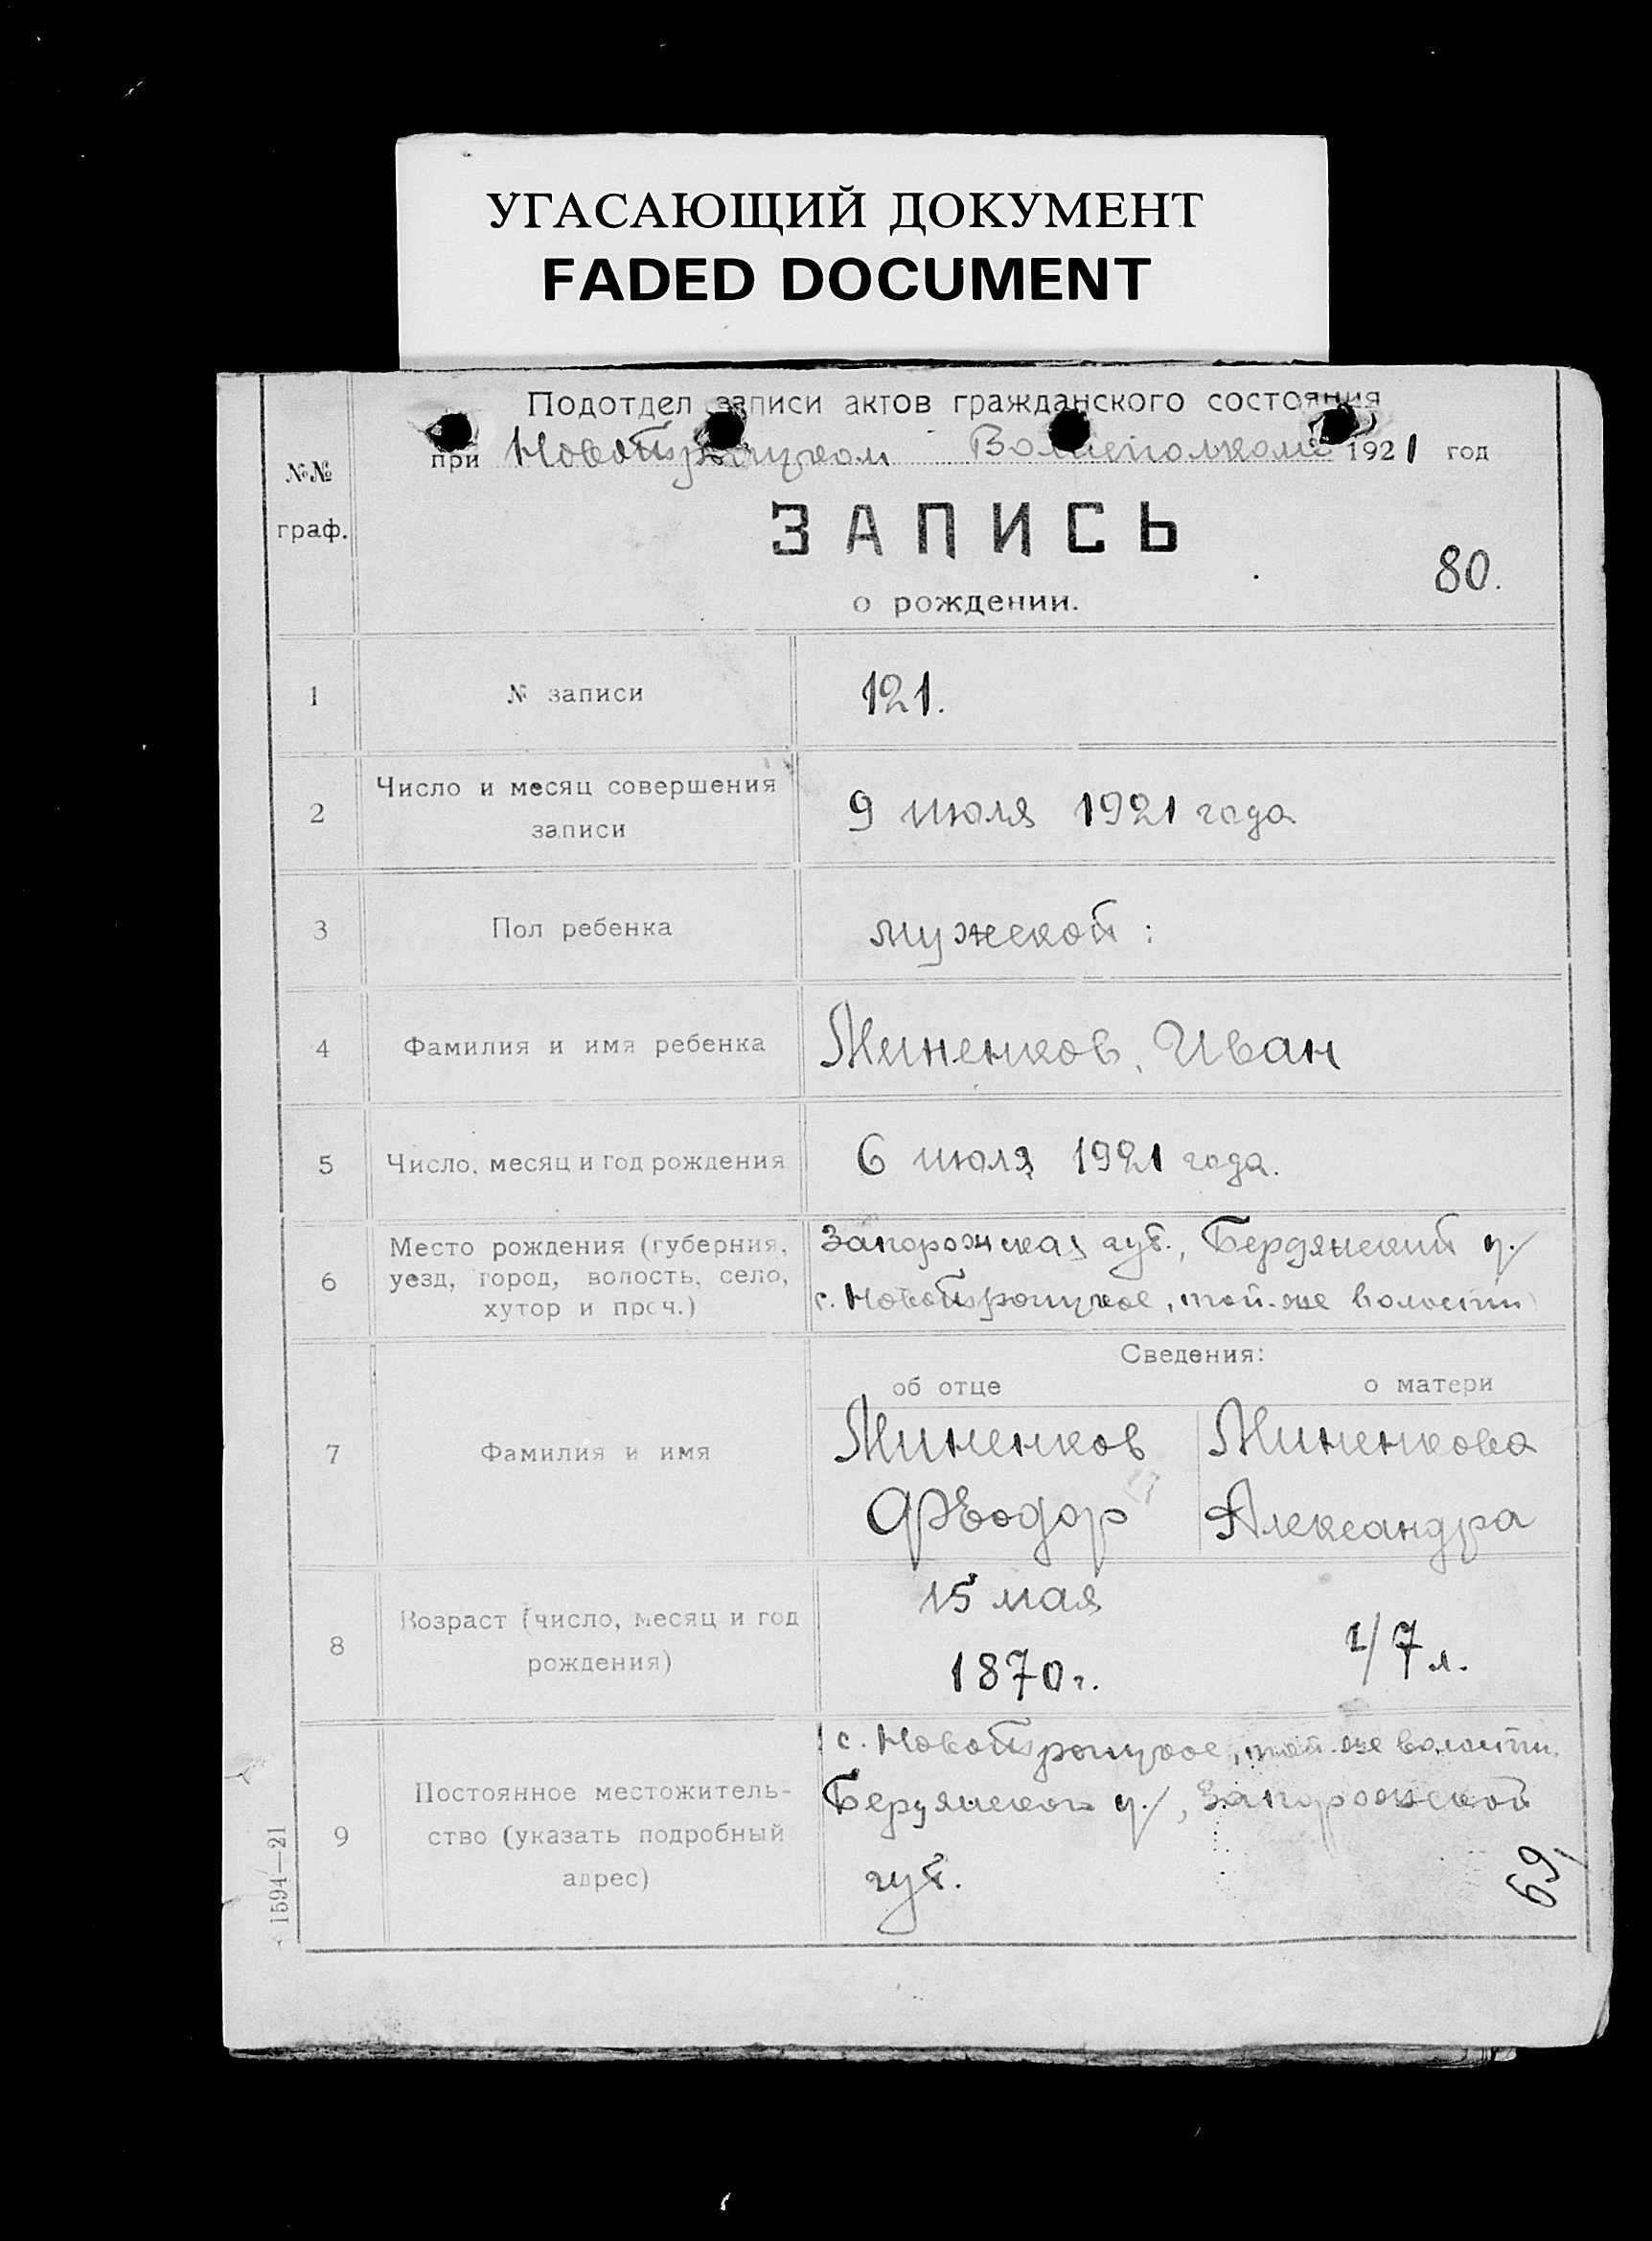 УГАСАЮЩИЙ ДОКУМЕНТ
FADED DOCUMENT
Подотдел записи актов гражданского состояния
при Новотроицком Волисполкоме 1921 год
№№
граф.
ЗАПИСЬ
80.
о рождении.
1 № записи 121.
2 Число и месяц совершения записи 9 июля 1921 года
3 Пол ребенка мужской:
4 Фамилия и имя ребенка Миненков, Иван
5 Число, месяц и год рождения 6 июля 1921 года.
6 Место рождения (губерния, Запорожская губ., Бердянский у./
уезд, город, волость, село, с. Новотроицкое, той-же волости
хутор и проч.)
Сведения:
об отце о матери
7 Фамилия и имя Миненков Миненкова
Феодор Александра
15 мая
8 Возраст (число, месяц и год
рождения) 1870 г. 47 л.
с. Новотроицкое, той-же волости
Постоянное местожитель- Бердянского у./, Запорожской
9 ство (указать подробный
адрес) губ.
69
1594—21